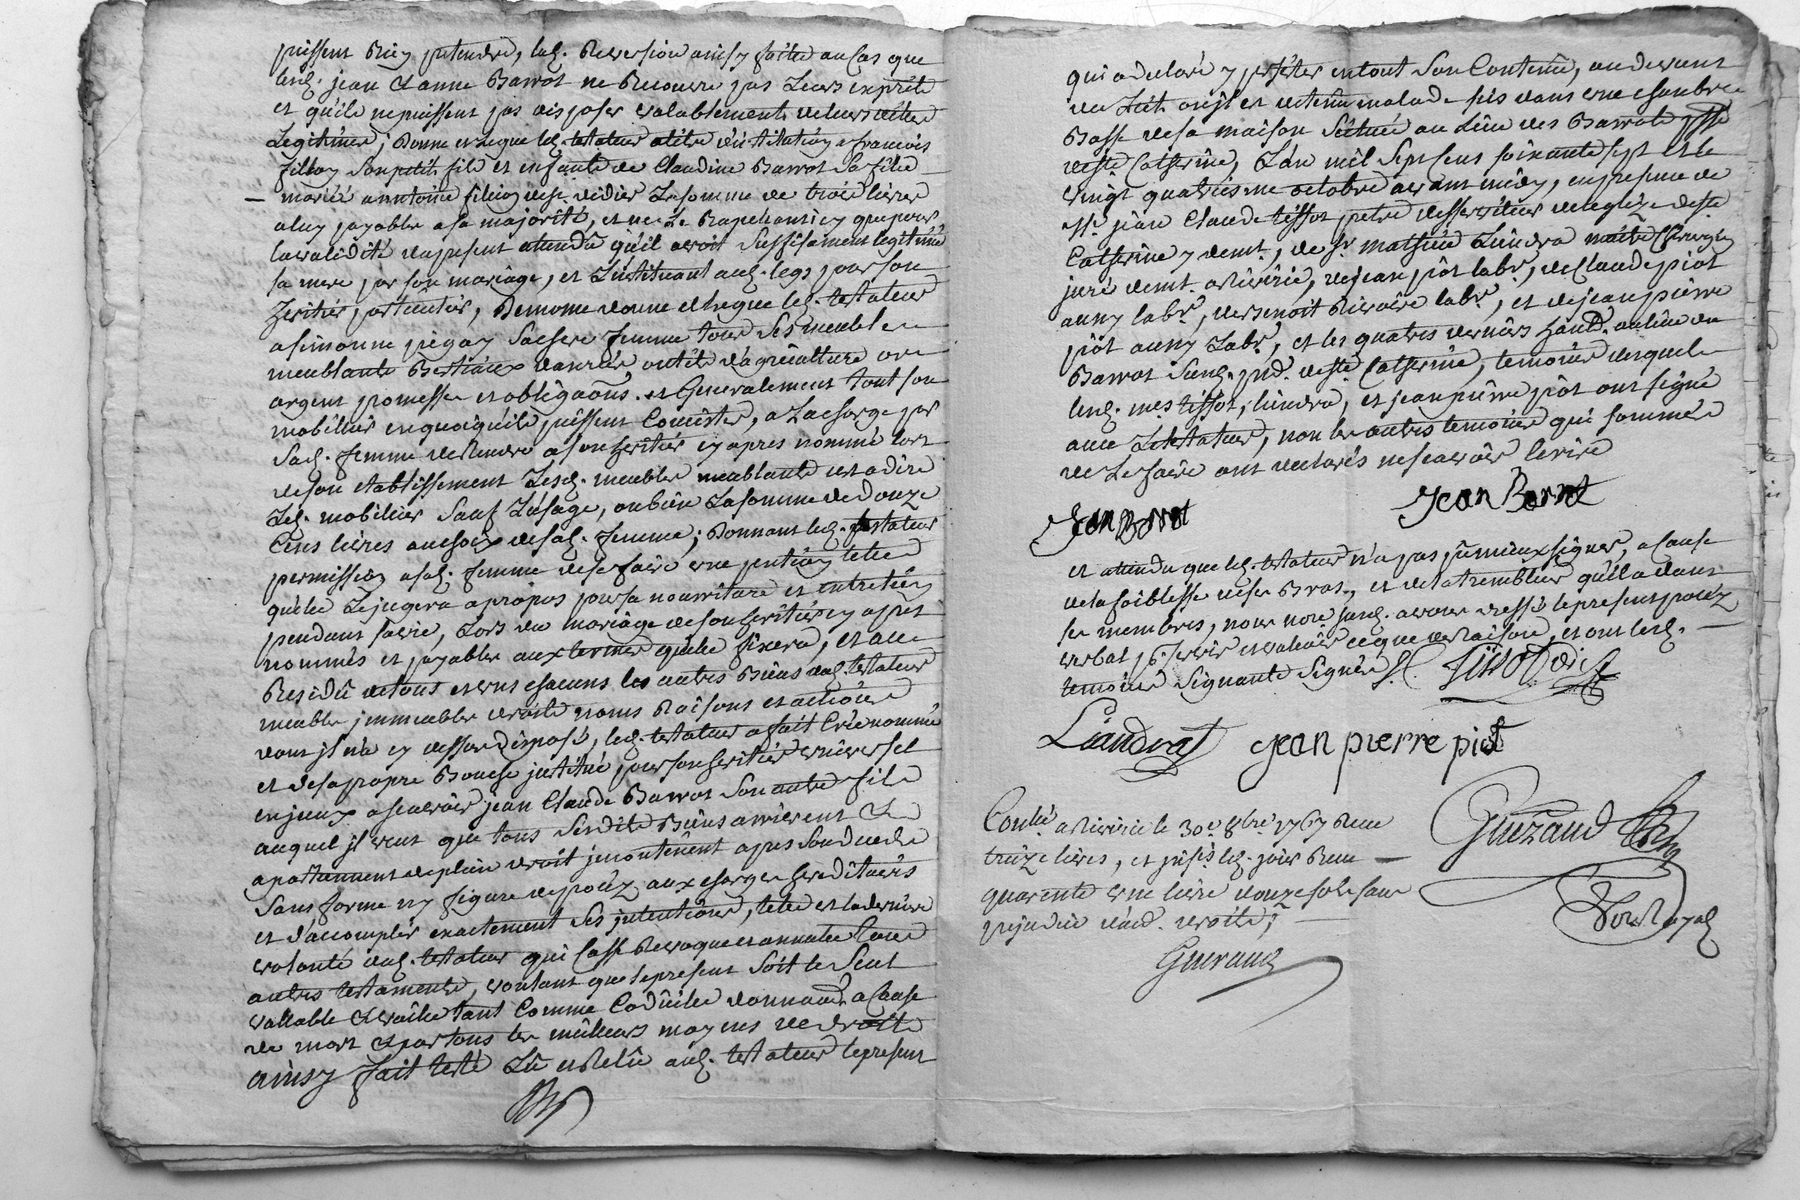 puissent rien pretendre, lad. reversion ainsy faitte au cas que
lesd. jean et anne Barrot ne recouvre pas leurs esprits
et quils ne puissent pas disposer valablement de leurs dittes
Legitimes; Donne et legue led. testateur a titre d'institution a francois
fillon son petit fils et enfante de Claudine Barrot sa fille
mariée a anntoine fillion de st. didier la somme de trois livres
a luy payable a sa majorité, et ne le rapellant icy que pour
la validité du present attendû qu'il avoit suffisament legitimé
sa mere par son mariage, et L'instituant aud. legs pour son
heritier particulier, De meme donne et legue led. testateur
a simonne pegay sa chere femme tous ses meubles
meublants Bestiaux danrées outils d'agriculture or
argent promesses et obligaons. et Generalement tout son
mobillier en quoiqu'ils puissent Consister, a la charge par
sad. femme de rendre a son heritier cy apres nommé lors
de son etablissement lesd. meubles meublants c'est a dire
led. mobilier sauf l'usage, ou bien la somme de Douze
Cens livres au choix de sad. femme; Donnant led. testateur
permission a sad. femme de se faire une pention telle
qu'elle le jugera a propos pour sa nourriture et entretien
pendant sa vie, lors du mariage de son heritier cy après
nommés et payable aux termes qu'elle fixera, et au
Residû de tous et uns chacuns les autres Biens dud. testateur
meubles jmmeubles droits noms raisons et actions
dont jl n'a cy dessus disposé, led. testateur a fait Créé nommé
et de sa propre Bouche jnstitué pour son heritier universel
en jceux a scavoir jean Claude Barrot son autre fils
auquel jl veut que tous sesdits Biens arrivent et
apartiennent de plein droit jncontinent apres son decéds
sans forme ny figure de procéz aux charges hereditaires
et d'accomplir exactement ses jntentions, telle est la derniere
volonté dud. testateur qui Casse Revoque et annulle tous
autres testaments, voulant que le present soit le seul
vallable et vaille tant Comme Codicille donnaon. a Cause
de mort et par tous les meilleurs moyens de droits
ainsy fait testé Lû et relû aud. testateur le present
qui a declaré y persister en tout son Contenu, au devant
du Lit ou jl est detenu malade sis dans une chambre
Basse de sa maison située au Lieu des Barrots psse
de ste Catherine, L'an mil sept cens soixante sept et le
vingt quatriesme octobre avant midy, en presence de
me. jean Claude tissot pretre desserviteur de leglize de ste
Catherine y demt., de sr. mathieu Liandra maitre Chirurgien
juré demt. a riverie, de jean piot labr., de Claude piot
aussy labr., de Benoit Riviere labr., et de jean pierre
piot aussy Labr., et les quatres derniers habit. au lieu du
Barrot susd. psse. de ste Catherine, temoins desquels
lesd. mes tissot, liandra, et jean pierre piot ont signé
avec Le testateur, non les autres temoins qui sommés
de Le faire ont declarés ne scavoir Ecrire
jean Barrot jean Barrot
et attendu que led. testateur n'a pas pu mieux signer, a cause
de la foiblesse de ses Bras, et de la tremblure qu'il a dans
ses membres, nous nore susd. avons dressé le present procéz
verbal pr. servir et valoir ce que de raison, et ont lesd.
temoins signants signés J. C. Tissot
Liandrat jean pierre piot
Conllé. a riverie le 30e. 8bre. 1767 Reçu
treize livres, et jnsis. led. jour Reçu
quarente une livre douze sols sans
prejudice d'aud. droits;
Gueraud
Guerand